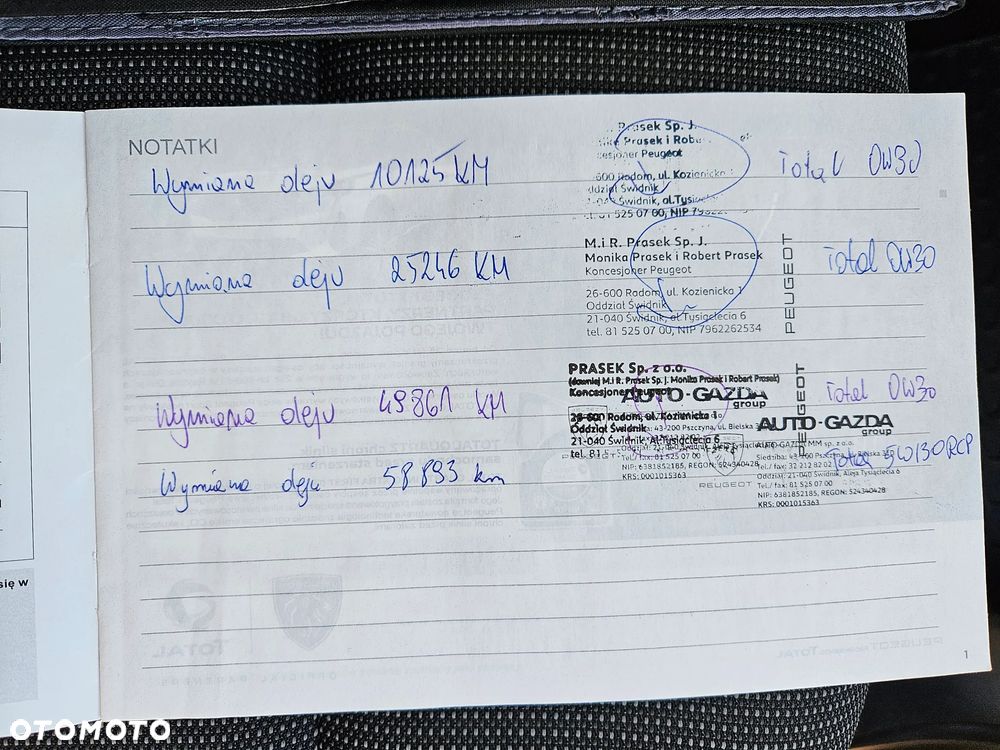 NOTATKI
Wymiana oleju 10125 KM
Prasek Sp. J.
Prasek i Robe
Peugeot
-600 Radom, ul. Kozienicka
Świdnik
Świdnik, ul.Tysiąc
525 07 00, NIP
Total 0W30
Wymiana oleju 25246 KM
M.i R. Prasek Sp. J.
Monika Prasek i Robert Prasek
Koncesjoner Peugeot
26-600 Radom, ul. Kozienicka 1
Oddział Świdnik
21-040 Świdnik, al.Tysiąclecia 6
tel. 81 525 07 00, NIP 7962262534
PEUGEOT
Total 0W30
Wymiana oleju 49861 KM
PRASEK Sp. z o.o.
(dawniej M.i R. Prasek Sp. J. Monika Prasek i Robert Prasek)
Koncesjoner Peugeot
26-600 Radom, ul. Kozienicka
Oddział Świdnik
21-040 Świdnik, Al.Tysiąclecia 6
tel. 81
PEUGEOT
Total 0W30
Wymiana oleju 58893 km
AUTO-GAZDA
group
43-200 Pszczyna, ul. Bielska
Tel./ fax: 81 525 07 00
NIP: 6381852185, REGON: 524340428
KRS: 0001015363
PEUGEOT
AUTO-GAZDA
group
AUTO-GAZDA MM sp. z o.o.
Siedziba: 43-200 Pszczyna, ul. Bielska
Tel./ fax: 32 212 82 02
Oddział: 21-040 Świdnik, Aleja Tysiąclecia 6
Tel./ fax: 81 525 07 00
NIP: 6381852185, REGON: 524340428
KRS: 0001015363
Total 5W30RCP
się w
1
OTOMOTO